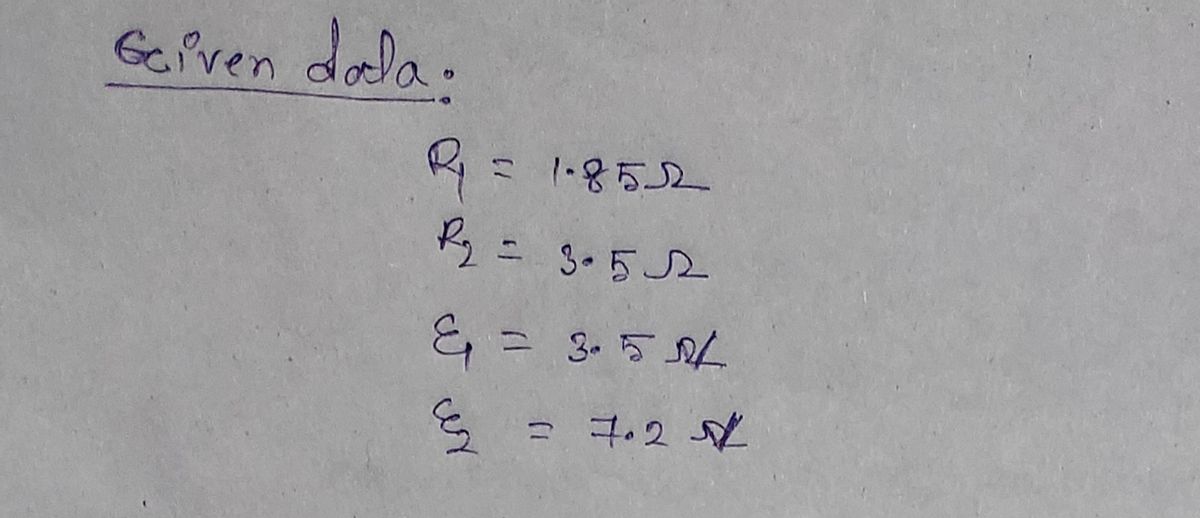 Given data:
R1 = 1.85Ω
R2 = 3.5Ω
ε1 = 3.5
ε2 = 7.2